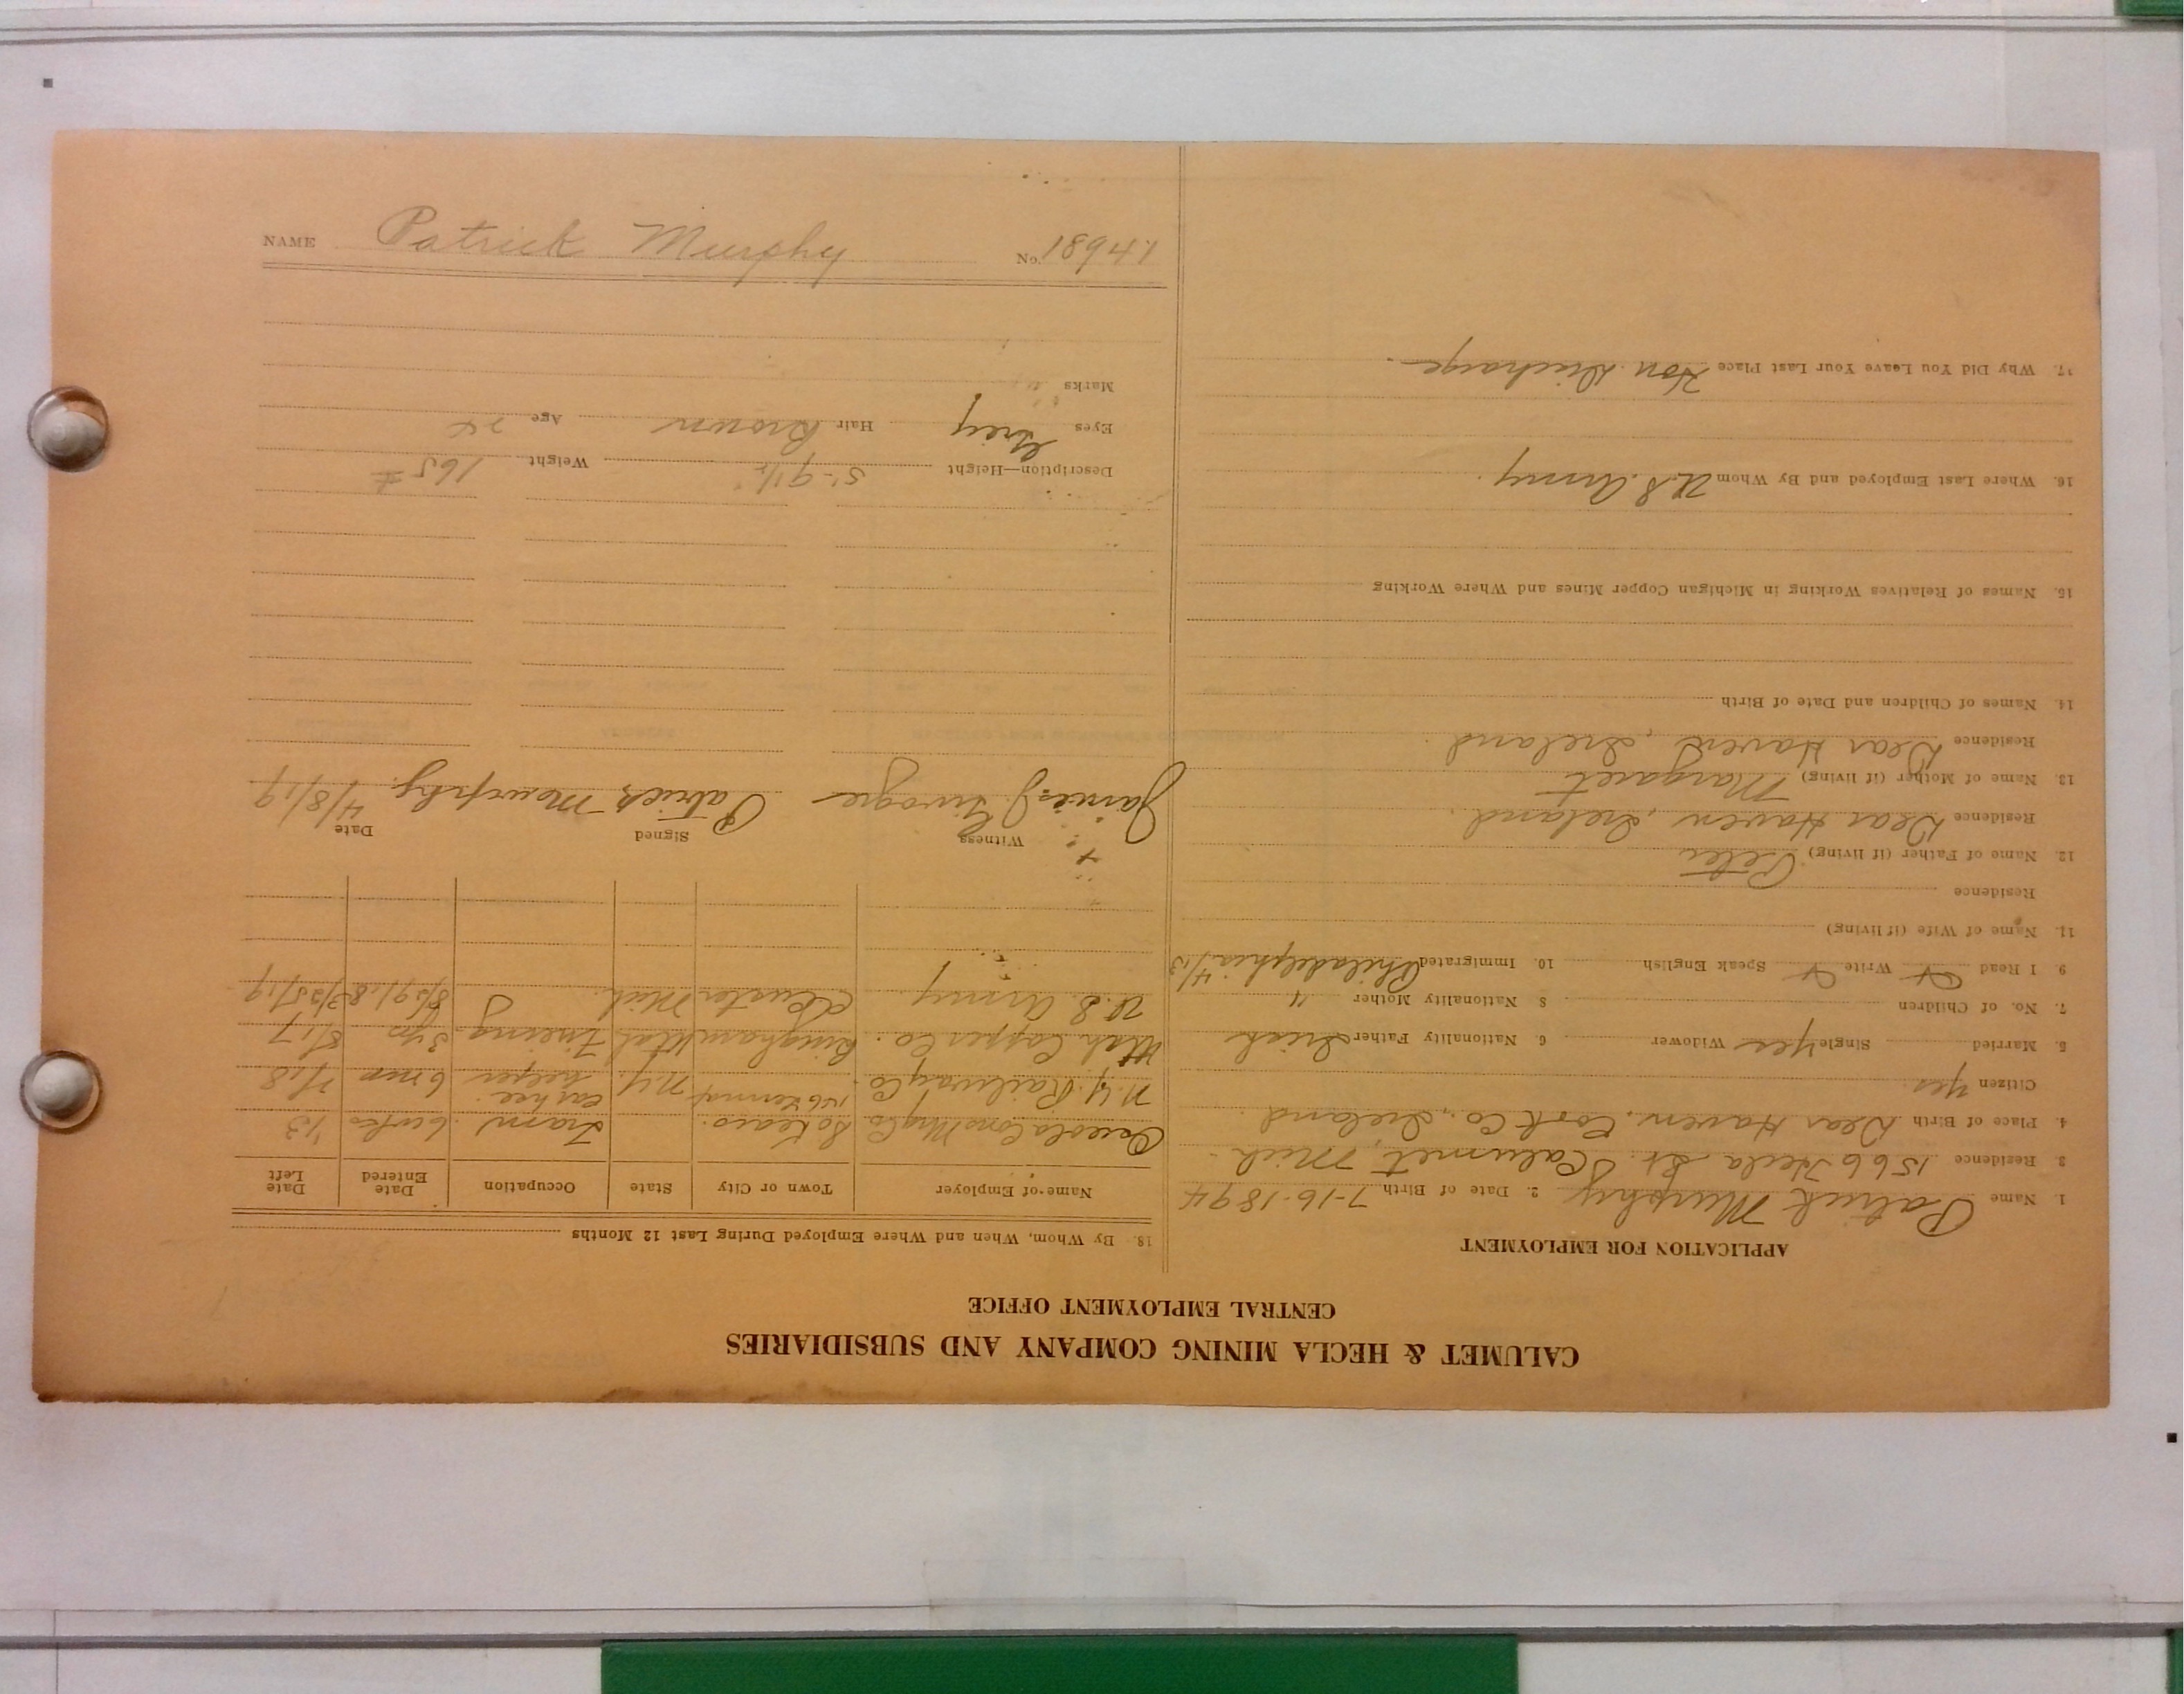 CALUMET & HECLA MINING COMPANY AND SUBSIDIARIES
CENTRAL EMPLOYMENT OFFICE
APPLICATION FOR EMPLOYMENT
1. Name Patrick Murphy 2. Date of Birth 7-16-1894
3. Residence 1566 Hecla St. Calumet, Mich
4. Place of Birth Dear Haven, Cork Co., Ireland.
Citizen yes
5. Married Single yes Widower 6. Nationality Father Irish
7. No. of Children 8 Nationality Mother "
9. I Read Write Speak English 10. Immigrated Philadelphia 4/13
11. Name of Wife (if living)
Residence
12. Name of Father (if living) Peter
Residence Dear Haven, Ireland.
13. Name of Mother (if living) Margaret
Residence Dear Haven, Ireland.
14. Names of Children and Date of Birth
15. Names of Relatives Working in Michigan Copper Mines and Where Working
16. Where Last Employed and By Whom U.S. Army.
17. Why Did You Leave Your Last Place Hon Discharge.
18. By Whom, When and Where Employed During Last 12 Months
Name of Employer Town or City State Occupation Date Entered Date Left
Osceola Cons Mng Co Tram 6 wks '13
N.Y. Railway Co. N.Y. car rec. helper 6 mos 7/18
Utah Copper Co. Bingham Utah Fireing 3 yrs 8/17
U.S. Army Custer Mich. " 8/29/18 3/25/19
Witness Signed Date
James J. Patrick Mourphy. 4/8/19
Description—Height 5'-9 1/2" Weight 165 #
Eyes Grey Hair Brown Age 24
Marks
NAME Patrick Murphy No. 18947